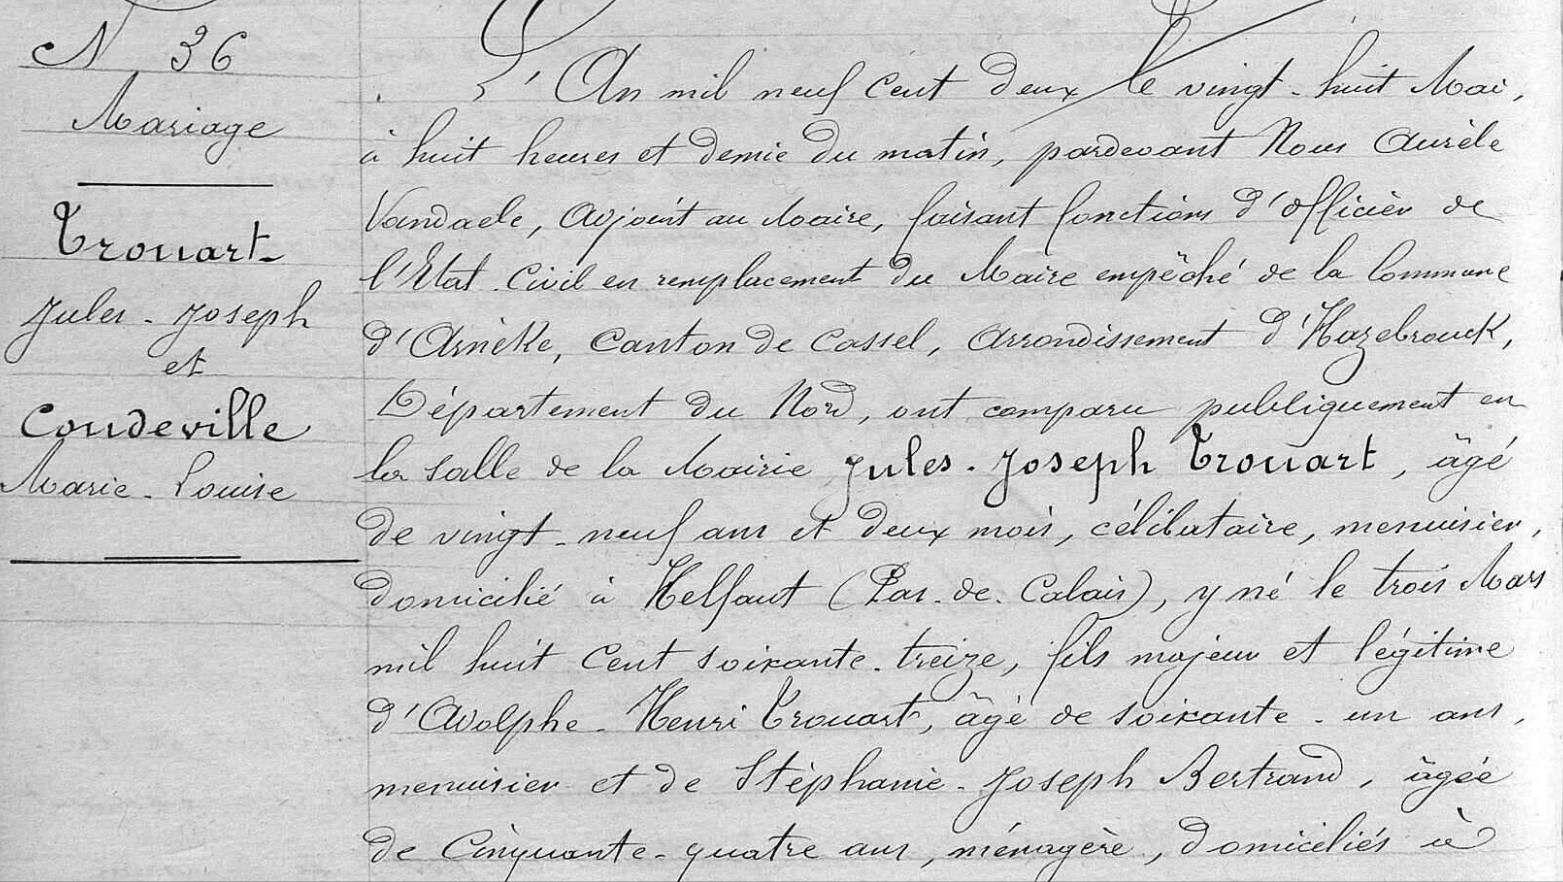 N 36
Mariage
Trouart
Jules-Joseph
et
Coudeville
Marie-Louise
L'An mil neuf cent deux le vingt-huit Mai,
à huit heures et demie du matin, pardevant Nous Aurèle
Vandaele, Adjoint au Maire, faisant fonctions d'officier de
l'Etat-Civil en remplacement du Maire empêché de la Commune
d'Arnèke, Canton de Cassel, Arrondissement d'Hazebrouck,
Département du Nord, ont comparu publiquement en
la salle de la Mairie Jules-Joseph Trouart, âgé
de vingt-neuf ans et deux mois, célibataire, menuisier,
domicilié à Helfaut (Pas-de-Calais), y né le trois Mars
mil huit cent soixante-treize, fils majeur et légitime
d'Adolphe-Henri Trouart, âgé de soixante-un ans,
menuisier et de Stéphanie-Joseph Bertrand, âgée
de cinquante-quatre ans, ménagère, domiciliés à